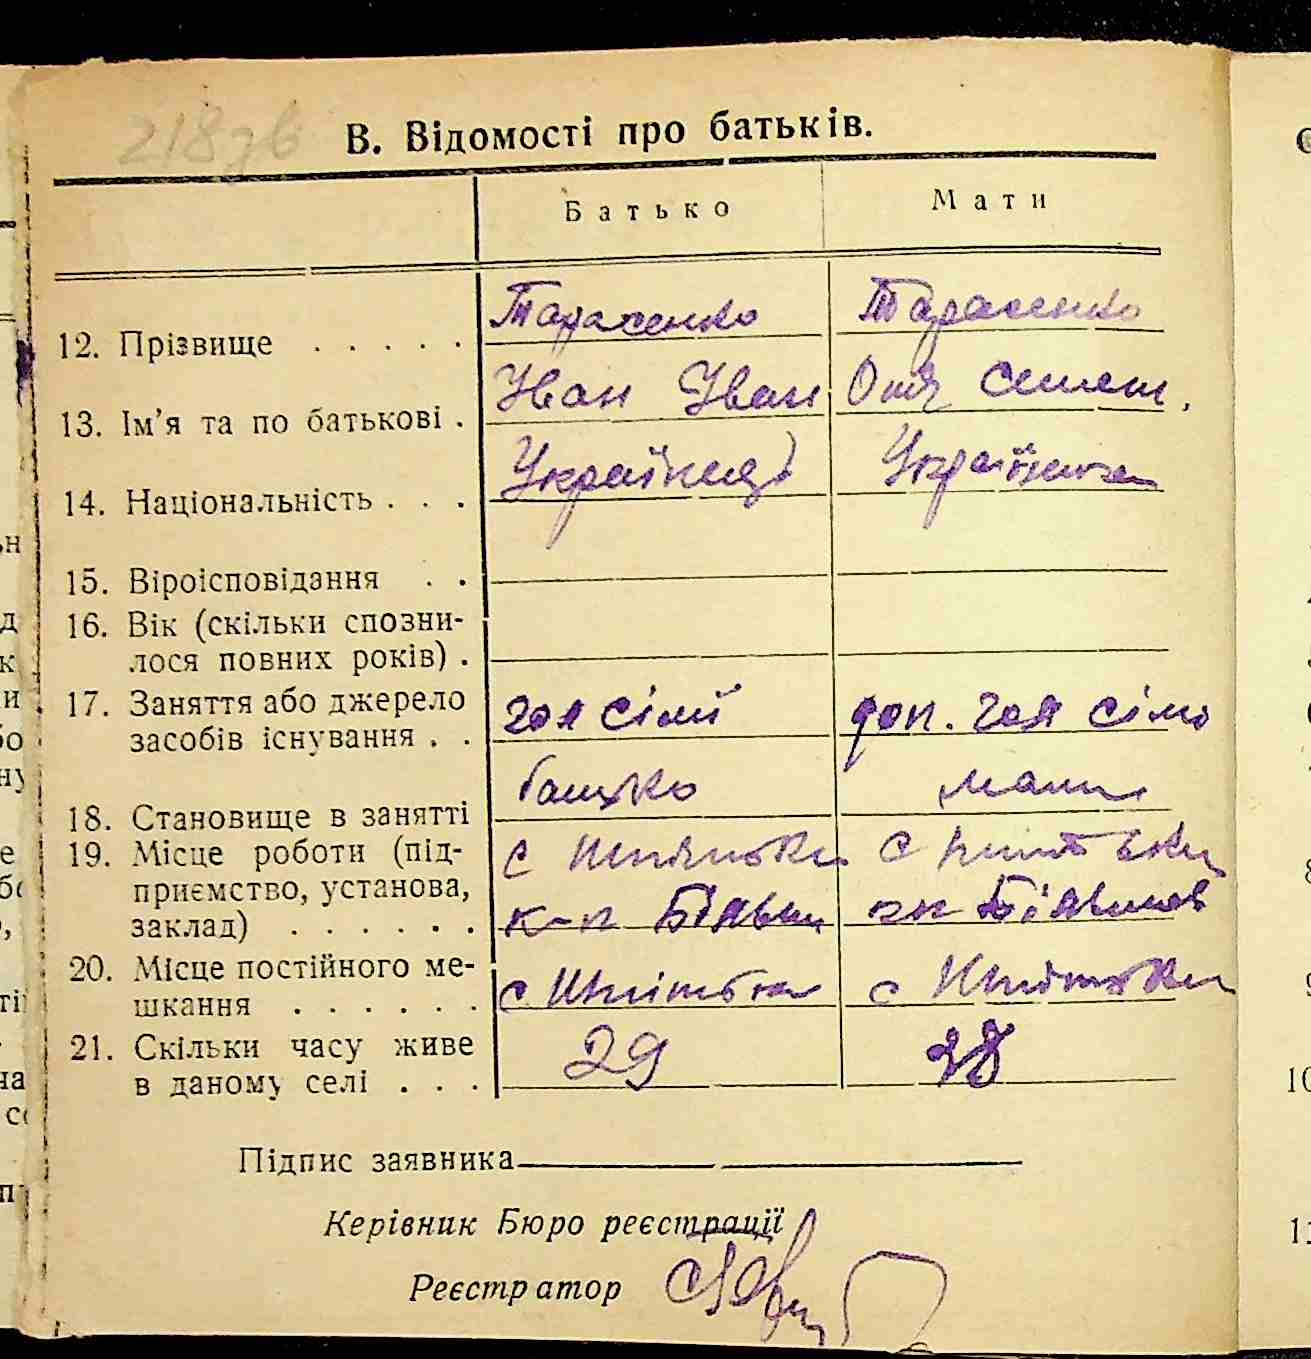 218зв
В. Відомості про батьків.
Батько Мати
12. Прізвище . . . . . Тарасенко Тарасенко
13. Ім'я та по батькові . Іван Іван Оля Семен.
14. Національність . . . Українец Українка
15. Віроісповідання . .
16. Вік (скільки сповни-
лося повних років) .
17. Заняття або джерело
засобів існування . . гол сімї доп. гол сімі
18. Становище в занятті батько мати
19. Місце роботи (під- с с
приємство, установа,
заклад) . . . . . . к-п
20. Місце постійного ме-
шкання . . . . . . с с
21. Скільки часу живе
в даному селі . . . 29 28
Підпис заявника
Керівник Бюро реєстрації
Реєстратор